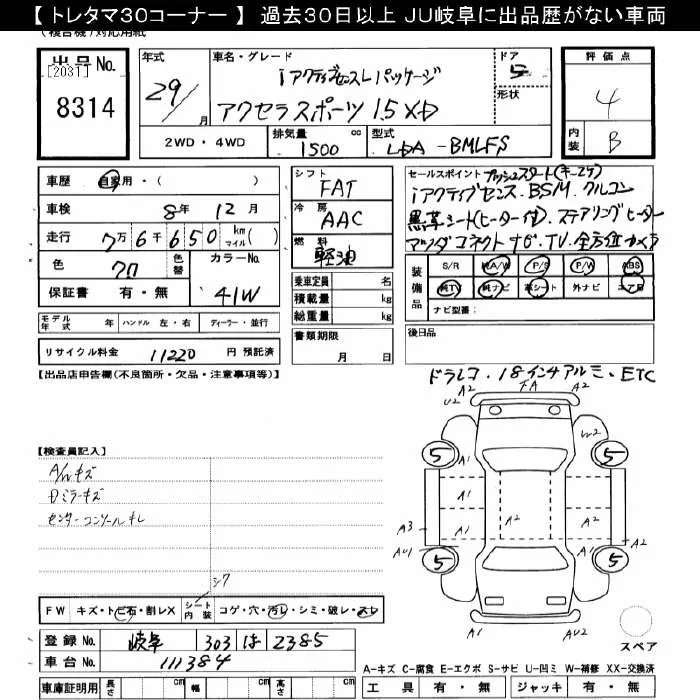 【 トレタマ30コーナー 】 過去30日以上 JU岐阜に出品歴がない車両
(複合機) 対応用紙
出品No.
[2031]
8314
年式
29/月
車名・グレード
iアクティブセンスLパッケージ
アクセラスポーツ 1.5XD
ドア
5
形状
評価点
4
内装
B
2WD・4WD
排気量
1500 cc
型式
LDA-BMLFS
車歴 自家用・( )
車検 8年 12月
走行 7万6千650 km マイル( )
色 クロ
色替
カラーNo.
41W
保証書 有・無
シフト
FAT
冷房
AAC
燃料
軽油
乗車定員 名
積載量 kg
総重量 kg
セールスポイント プッシュスタート(キー2ケ)
iアクティブセンス.BSM.クルコン
黒革シート(ヒーター付).ステアリングヒーター
マツダコネクトナビ.TV.全方位カメラ
装備品
S/R 純A/W P/S P/W ABS
純TV 純ナビ 革シート 外ナビ エアB
ナビ型番:
モデル年式 年 ハンドル 左・右 ディーラー・並行
リサイクル料金 11220 円 預託済
書類期限
月 日
後日品
【出品店申告欄(不良箇所・欠品・注意事項等)】
ドラレコ.18インチアルミ.ETC
【検査員記入】
A/Wキズ
Dミラーキズ
センターコンソールキレ
U2
A2
FA
A2
W2
5
5
A1
A1
A2
A3
A1
A2
AU1
A1
5
5
A1
AU2
スペア
シワ
FW キズ・トビ石・割レX
シート内装
コゲ・穴・汚レ・シミ・破レ・スレ
登録No. 岐阜 303 ほ 2385
車台No. 111384
車庫証明用 長さ cm 幅 cm 高さ cm
A-キズ C-腐食 E-エクボ S-サビ U-凹ミ W-補修 XX-交換済
工具 有・無 ジャッキ 有・無